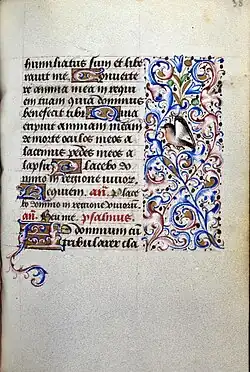 38
humiliatus sum et libe
rauit me. Conuerte
re anima mea in requi
em tuam quia dominus
benefecit tibi Quia
eripuit animam meam
de morte oculos meos a
lacrimis pedes meos a
lapsu Placebo do
mino in regione viuor.
Requiem. añ. Place
bo domino in regione viuorū.
añ. Heu me. psalmus.
Ad dominum cū
tribularer cla